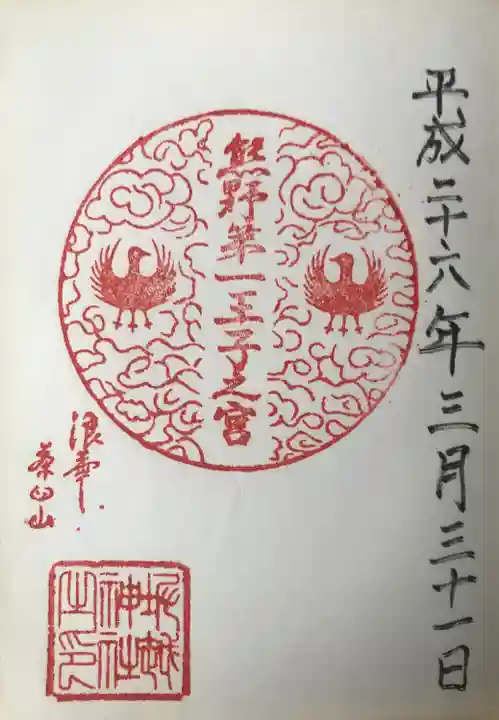 平成二十六年三月三十一日
熊野第一王子之宮
浪華
茶臼山
堀越
神社
之印